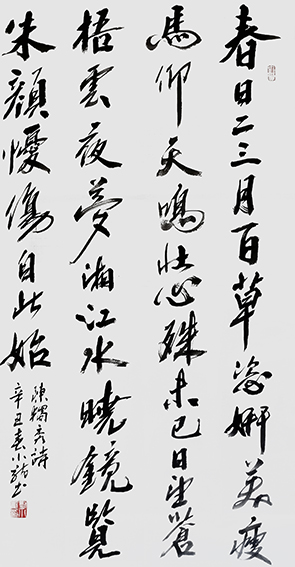 春日二三月百草恣妍美瘦
馬仰天鳴壯心殊未已日望蒼
梧雲夜夢湘江水曉鏡覽
朱顏懮傷自此始
陳獨秀詩
辛丑春小書